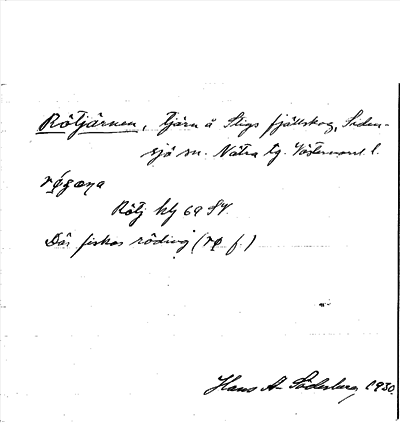 Rötjärnen, tjärn å Stigs fjällskog, Siden-
sjö sn. Nätra tg. Västernorrl. l.
Rötj
Där fiskas röding (rø f.)
Hans A. Söderberg 1930.